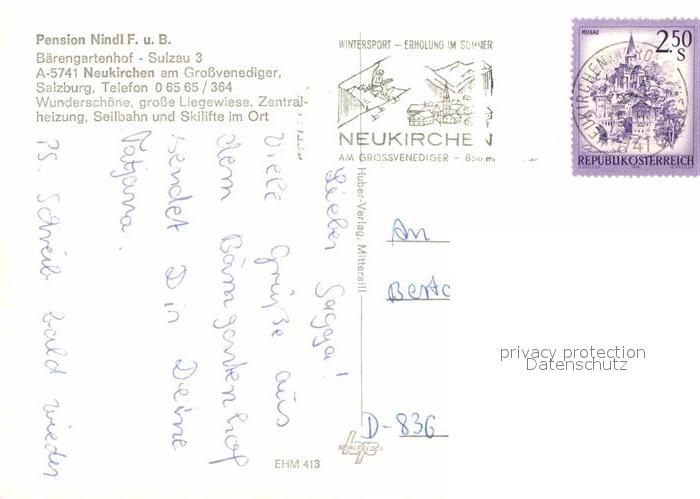 Pension Nindl F. u. B.
Bärengartenhof - Sulzau 3
A-5741 Neukirchen am Großvenediger,
Salzburg, Telefon 0 65 65 / 364
Wunderschöne, große Liegewiese, Zentral-
heizung, Seilbahn und Skilifte im Ort
WINTERSPORT – ERHOLUNG IM SOMMER
NEUKIRCHEN
AM GROSSVENEDIGER – 850 m
MURAU
2.50
S
REPUBLIK ÖSTERREICH
NEUKIRCHEN
5741
Lieber
Viele Grüße aus
dem Bärngartenhof
sendet Dir Deine
Tatjana.
PS. Schreib bald wieder
Huber-Verlag, Mittersill
An
D-836
EHM 413
privacy protection
Datenschutz